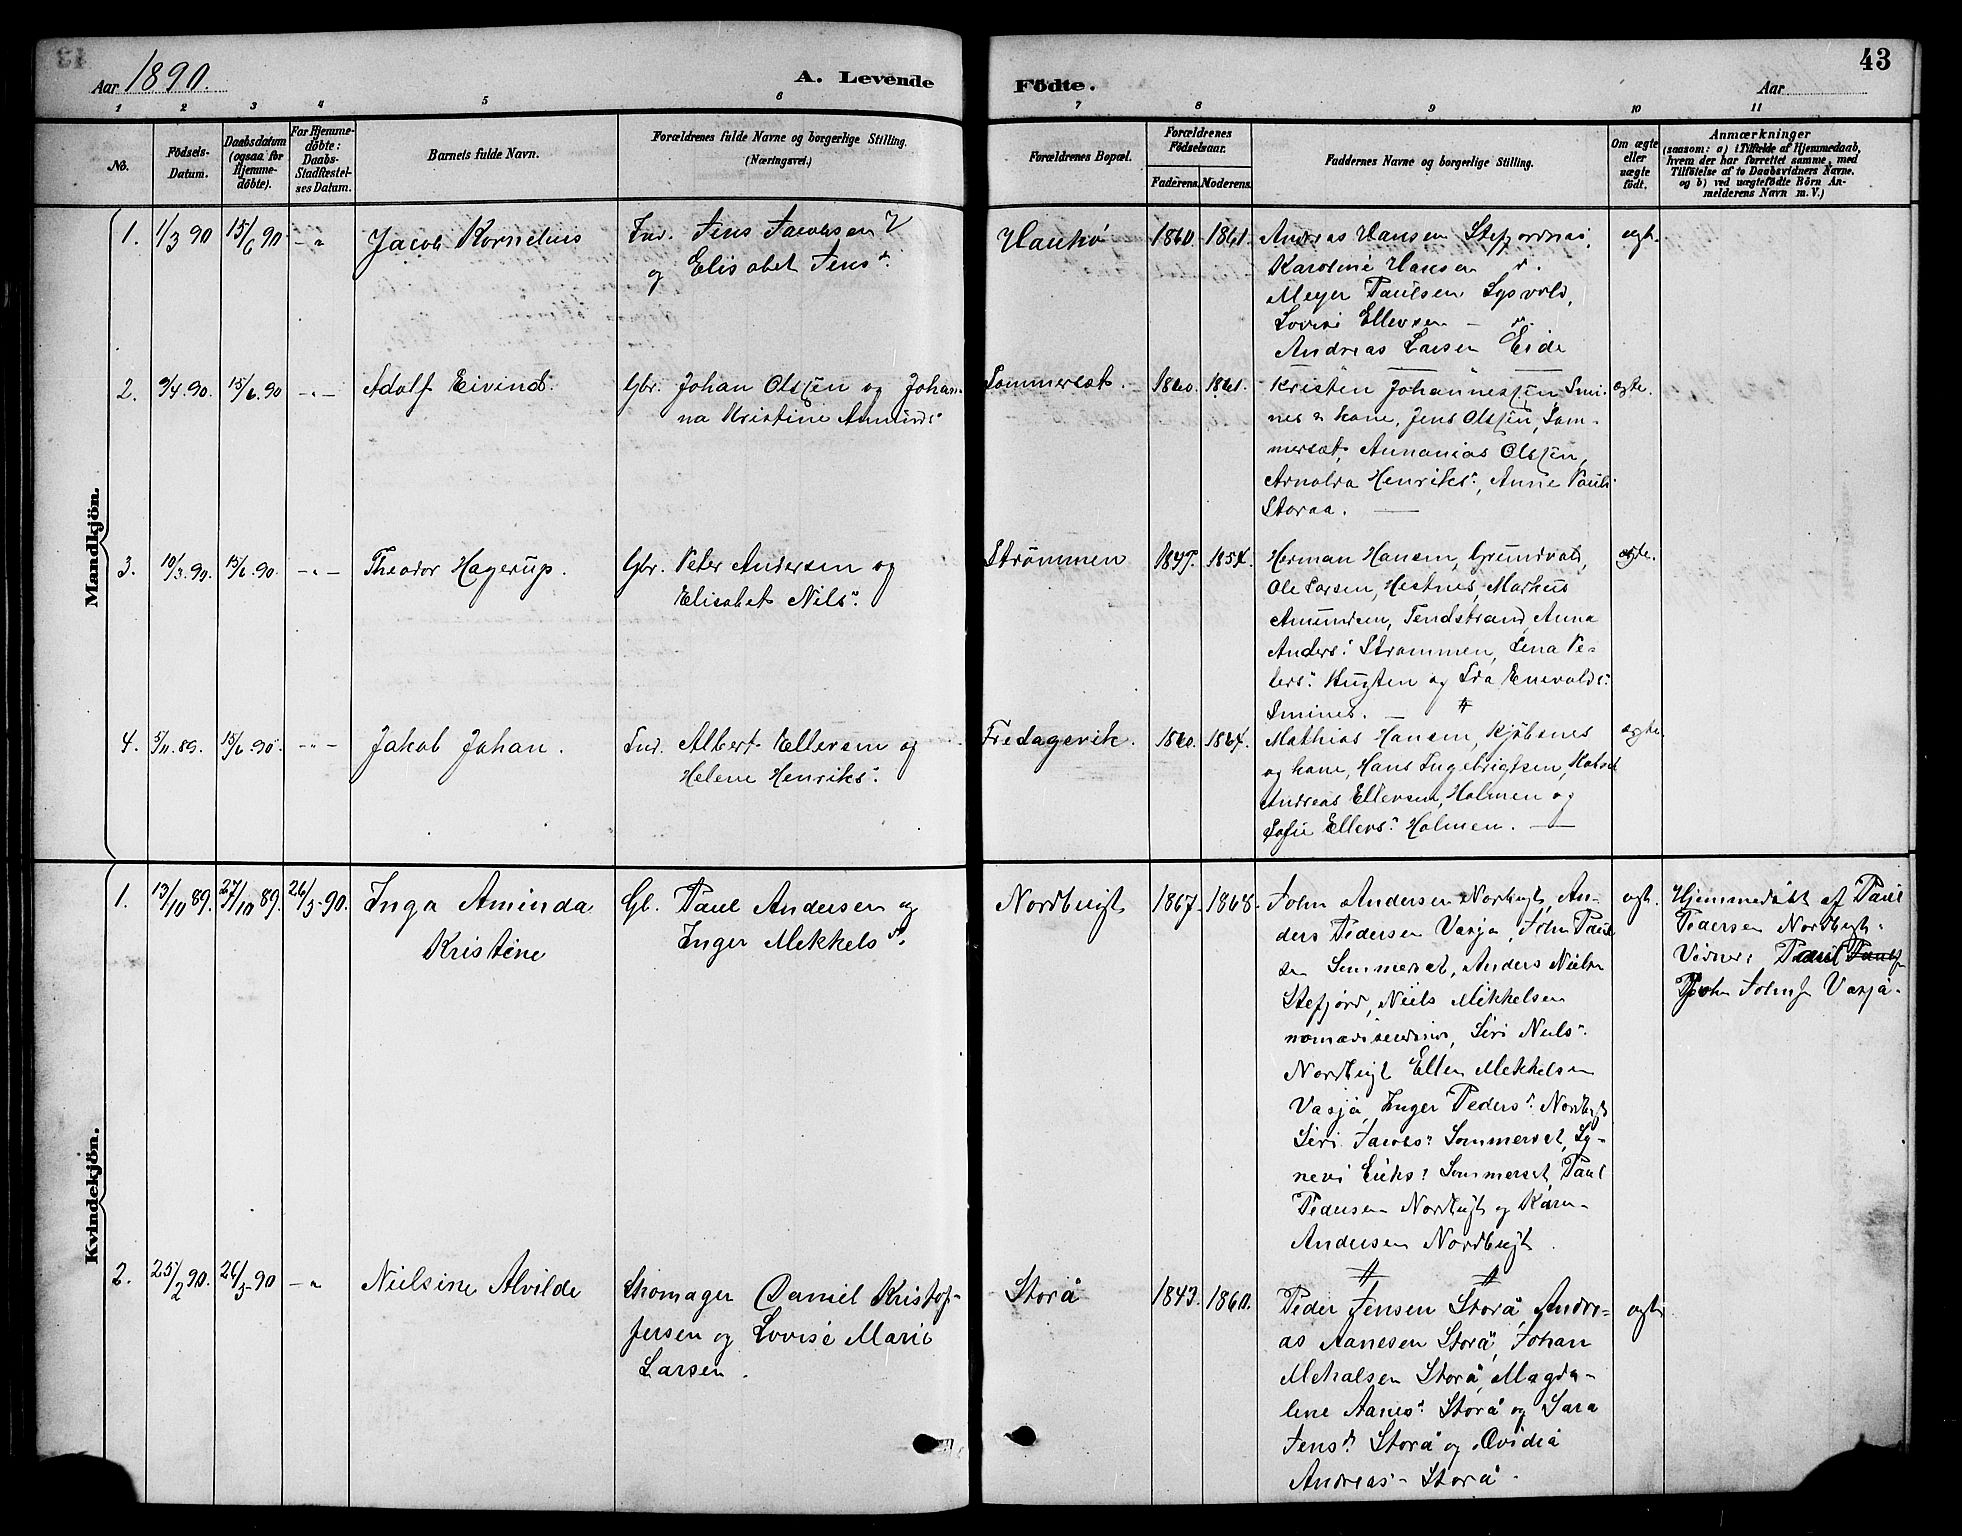 Aar 1890. A. Levende Födte. Aar 43
1 2 3 4 5 6 7 8 9 10 11
No.
Födsels-Datum.
Daabsdatum (ogsaa for Hjemme-döbte).
For Hjemme-döbte: Daabs-Stadfæstel-ses Datum.
Barnets fulde Navn.
Forældrenes fulde Navne og borgerlige Stilling. (Næringsvei.)
Forældrenes Bopæl.
Forældrenes Födselsaar.
Faderens. Moderens.
Faddernes Navne og borgerlige Stilling.
Om ægte eller uægte födt.
Anmærkninger
(saasom: a) i Tilfælde af Hjemmedaab,
hvem der har forrettet samme, med
Tilföielse af to Daabsvidners Navne.
og b) ved uægtefödte Börn An-
melderens Navn m. V.)
Mandkjön.
1. 1/3 90 15/6 90 -"- Jacob Kornelius
Ind. Jens Jacobsen
og Elisabet Jens d.
1860. 1861.
Andreas Hansen Stefjordnæs,
Karoline Hansen
Meyer Paulsen Lysvold,
Lovise Ellevsen — "
Andreas Larsen Eide
ægt.
2. 9/4.90. 15/6.90 -"- Adolf Eivind.
Gbr. Johan Olsen og Johan-
na Kristine Amunds d
Sommersæt. 1860. 1861.
Kristen Johannessen, Smi-
nes & kone, Jens Olsen, Som-
mersæt, Annanias Olsen,
Arnolda Henriks d, Anne Pauls
Storaa. —
ægte.
3. 10/3.90. 15/6.90. -"- Theodor Hagerup.
Gbr. Peter Andersen og
Elisabet Nils d.
Strömmen 1847. 1854.
Herman Hansen, Grundvat,
Ole Larsen, Hestnes, Markus
Amundsen, Tendstrand, Anna
Anders d. Strømmen, Lena Pe-
ters d. og Ida Enevolds d.
Smines. —
ægte.
4. 5/11.89. 15/6.90. -"- Jakob Johan.
Ind. Albert Ellevsen og
Helene Henriks d.
Fredagsvik. 1860. 1864.
Mathias Hansen, Kjöbsnes
og kone, Hans Ingebrigtsen,
Andreas Ellevsen, Holmen og
Sofie Ellevs d. Holmen. —
ægte.
Kvindekjön.
1. 13/10 89. 27/10 89. 26/5-90. Inga Aminda
Kristine
Gl. Paul Andersen og
Inger Mikkels d.
Nordbugt 1867. 1868.
John Andersen Nordbugt, An-
ders Pedersen Vasja, John Paul
sen Sommerset, Anders Niels
Stefjord, Niels Mikkelsen
nomadiserende, Siri Niels d.
Nordbugt Ellen Mikkelsen
Vasja, Inger Peders d. Nordbugt
Siri Jacobs d Sommerset, Sy-
nevi Eriks d Sommerset, Paul
Pedersen Nordbugt og Karen
Andersen Nordbugt.
ægt.
Hjemmedöbt af Paul
Pedersen Nordbugt.
Vidner: Paul
John Johns Vasja.
2. 25/2 90. 26/5-90 -" Nielsine Alvilde
Skomager Daniel Kristof-
fersen og Lovise Marie
Larsen.
Storå 1843. 1860.
Peder Jensen Storå, Andre-
as Aanesen Storå, Johan
Mikalsen Storå, Magda-
lene Aanes d Storå og Sara
Jens d. Storå og Ovidia
Andreas - Storå.
ægt.